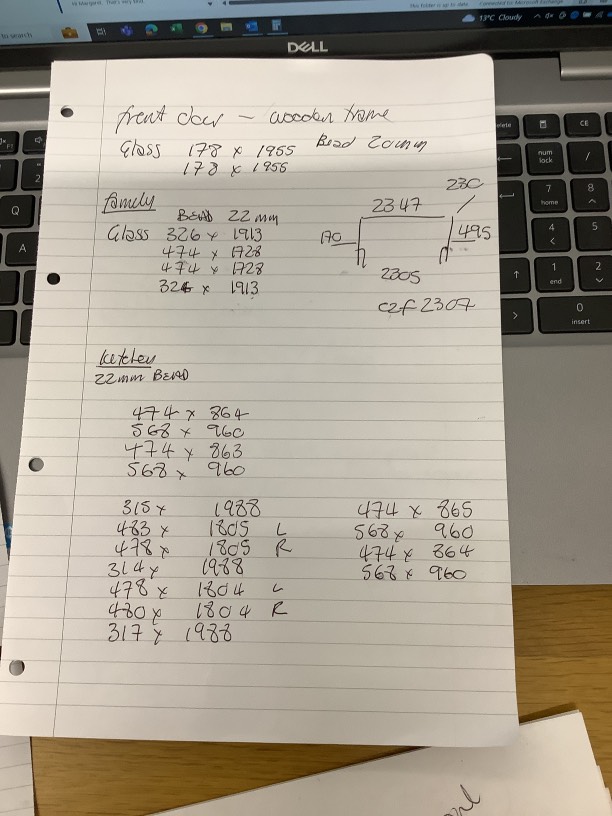 to search
13°C Cloudy
DELL
front door - wooden frame
Glass 178 x 1955 Bead 20mm
178 x 1955
family
BEAD 22mm
Glass 326 x 1913
474 x 1728
474 x 1728
326 x 1913
230
2347
170
495
2305
c2f 2307
kitchen
22mm BEAD
474 x 864
568 x 960
474 x 863
568 x 960
315 x 1988
483 x 1805 L
478 x 1805 R
314 x 1988
478 x 1804 L
480 x 1804 R
317 x 1988
474 x 865
568 x 960
474 x 864
568 x 960
Q
A
2
num lock
CE
/
7 home
8
4
5
1 end
2
0 insert